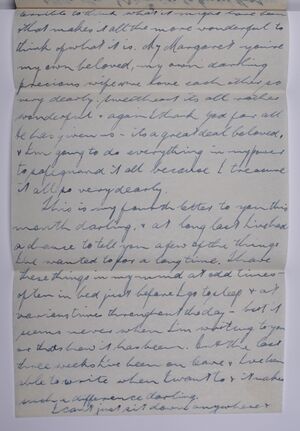 terrible to think what it might have been
that makes it all the more wonderful to
think of what it is. My Margaret you're
my own beloved, my own darling
precious wife we love each other so
very dearly, sweetheart its all rather
wonderful & again I thank God for all
he has given us - its a great deal beloved,
& I'm going to do everything in my power
to safeguard it all because I treasure
it all so very dearly.
This is my fourth letter to you this
month darling, & at long last I've had
a chance to tell you a few of the things
I've wanted to for a long time. I have
these things in my mind at odd times -
often in bed just before I go to sleep & at
various times throughout the day - but it
seems never when I'm writing to you
or thats how it has been. But the last
three weeks I've been on leave & I've been
able to write when I want to & it makes
such a difference darling.
I can't just sit down anywhere &